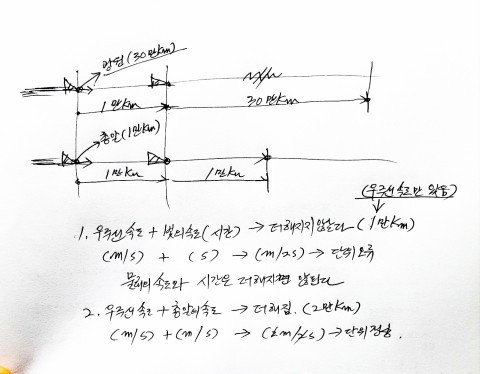 광원(30만km)
1만km
30만km
총알(1만km)
1만km
1만km
(우주선 속도만 있음)
1. 우주선속도 + 빛의속도(시간) → 더해지지않는다 (1만km)
(m/s) + (s) → (m/2s) → 단위오류
물체의 속도와 시간은 더해지면 않된다
2. 우주선속도 + 총알의속도 → 더해짐. (2만km)
(m/s) + (m/s) → → 단위정상.